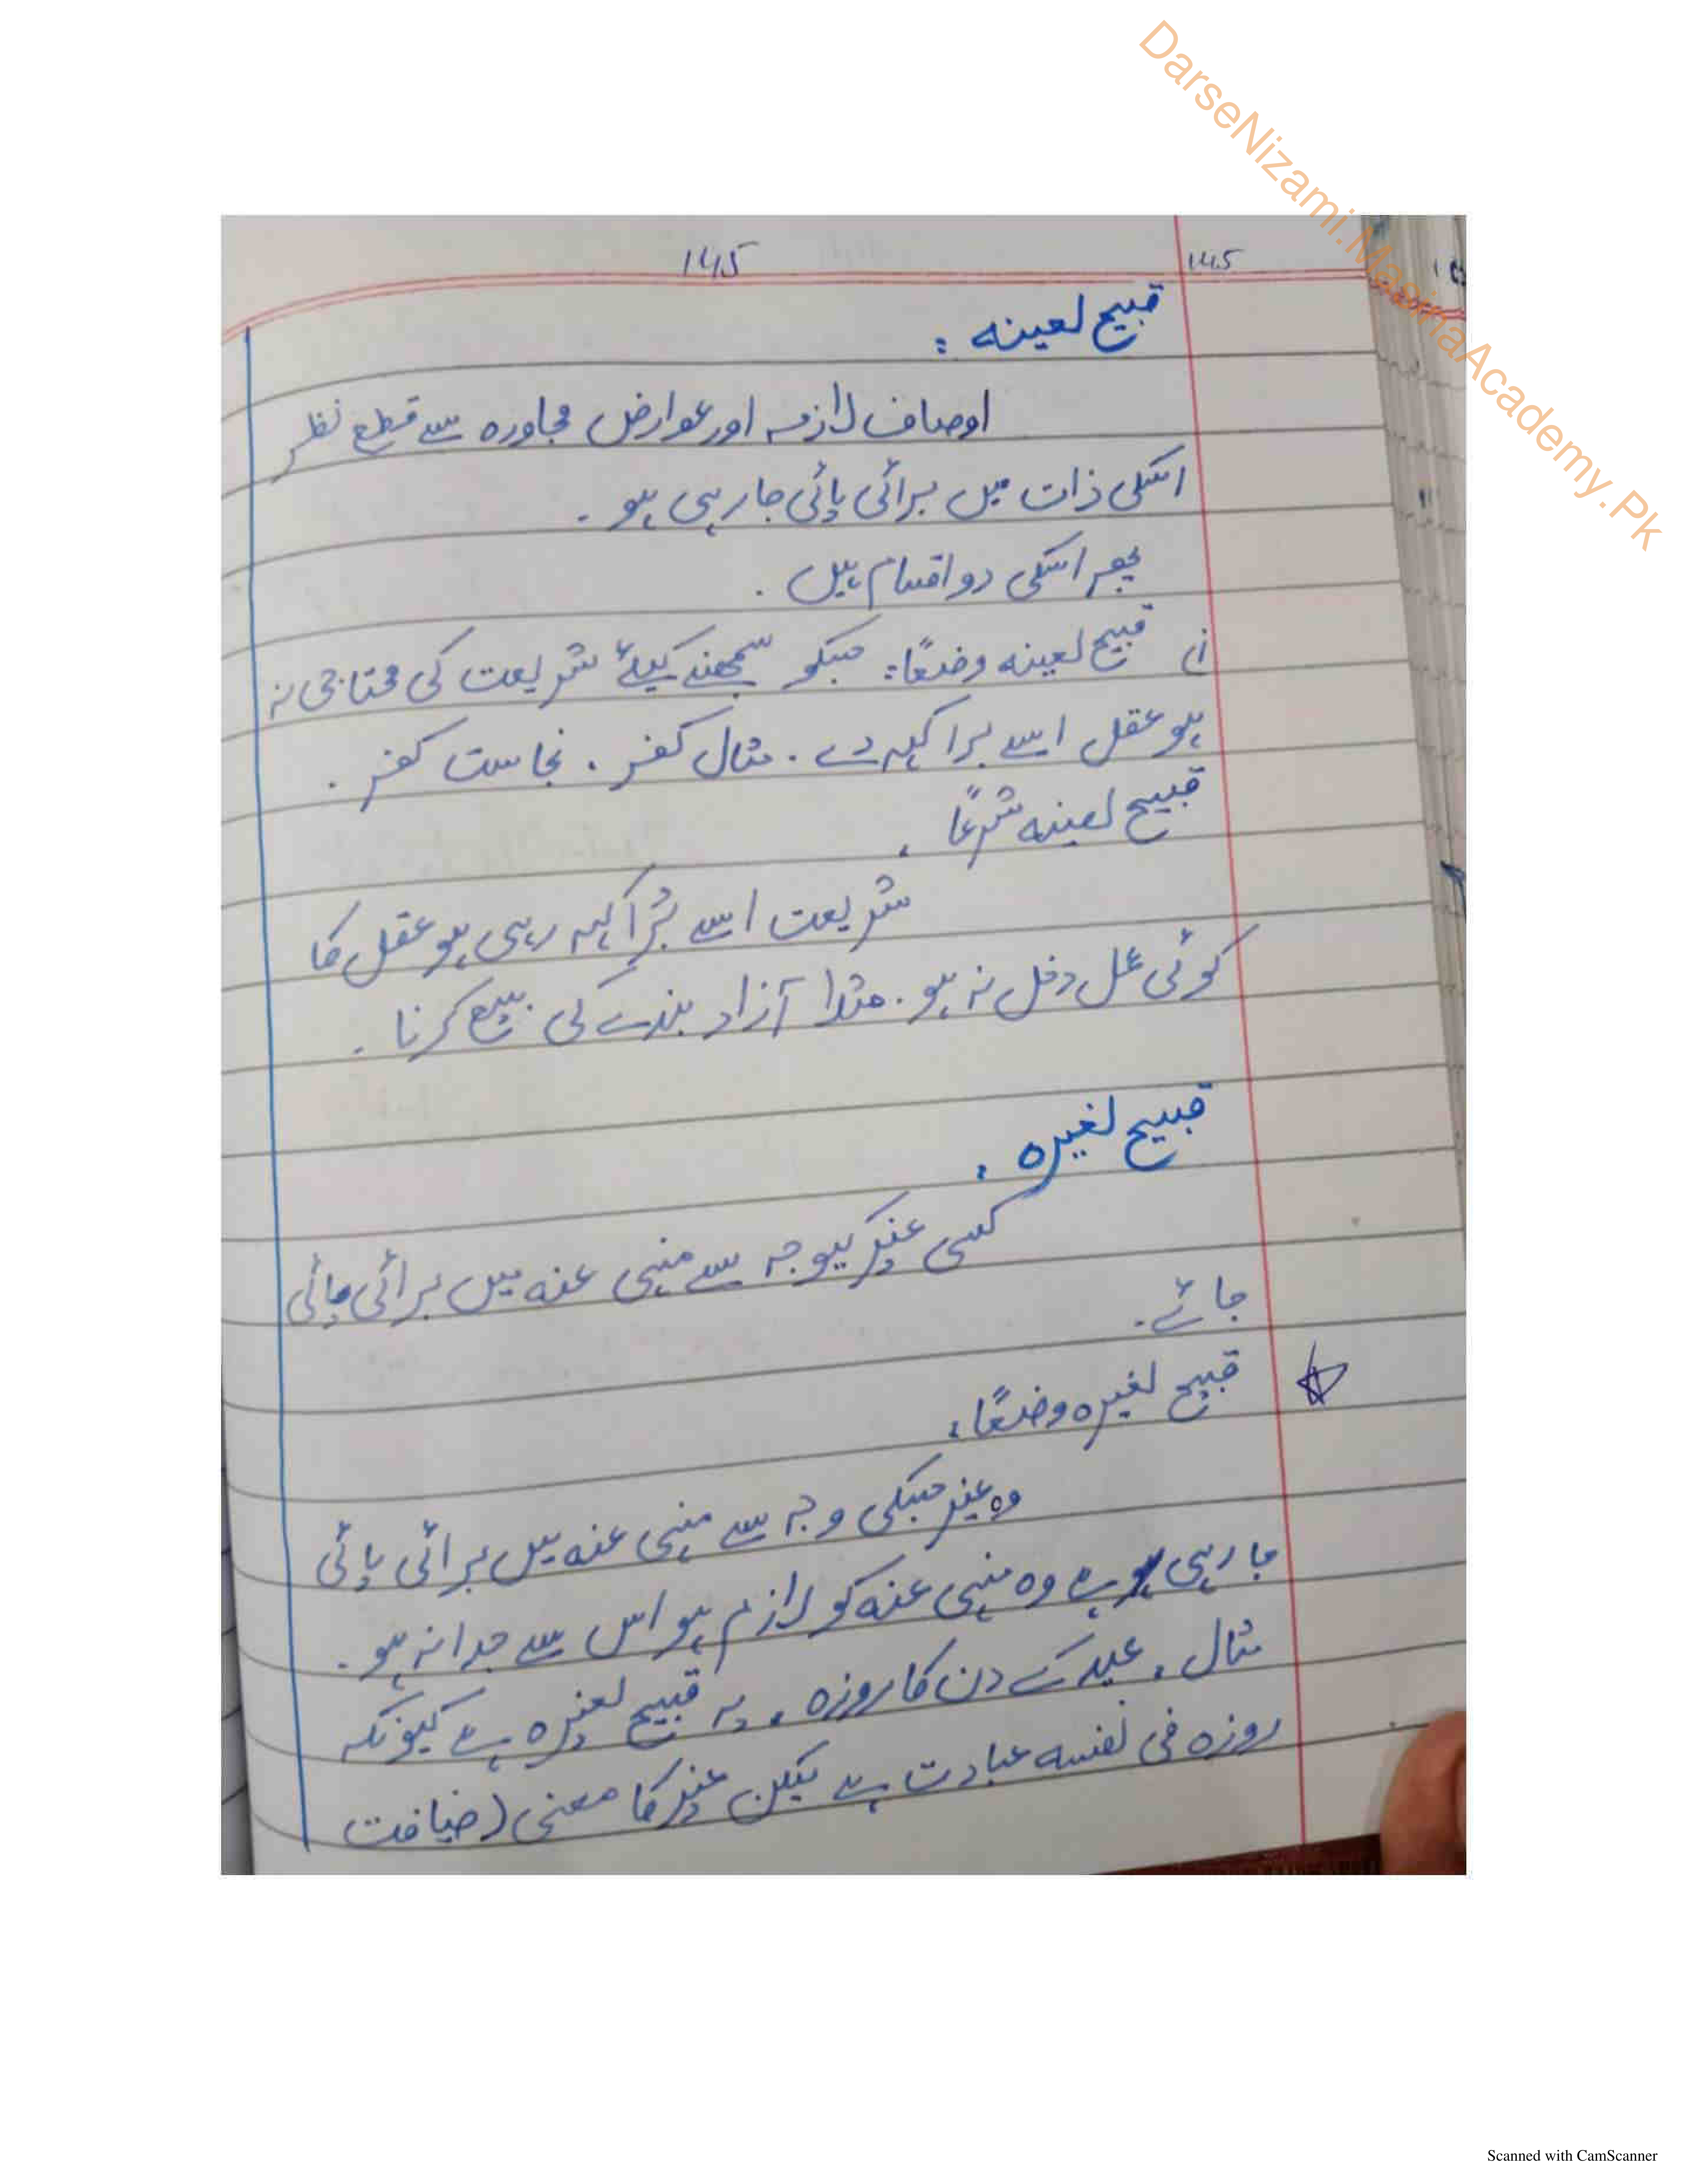 DarseNizami.MadinaAcademy.Pk
145
145
قبیح لعینہ :
اوصاف لازمہ اور عوارض مجاورہ سے قطع نظر
اسکی ذات میں برائی پائی جا رہی ہو ۔
پھر اسکی دو اقسام ہیں ۔
قبیح لعینہ وضعًا: جسکو سمجھنے کیلئے شریعت کی محتاجی نہ
ہو عقل اسے برا کہہ دے ۔ مثال کفر ۔ نجاست کفر ۔
قبیح لعینہ شرعًا ۔
شریعت اسے بُرا کہہ رہی ہو عقل کا
کوئی عمل دخل نہ ہو ۔ مثلا آزاد بندے کی بیع کرنا ۔
قبیح لغیرہ :
کسی غیر کیوجہ سے منہی عنہ میں برائی پائی
جائے ۔
قبیح لغیرہ وضعًا :
وہ غیر جسکی وجہ سے منہی عنہ میں برائی پائی
جا رہی ہے وہ منہی عنہ کو لازم ہو اس سے جدا نہ ہو ۔
مثال : عید کے دن کا روزہ ۔ یہ قبیح لغیرہ ہے کیونکہ
روزہ فی نفسہ عبادت ہے لیکن غیر کا معنی (ضیافت
Scanned with CamScanner